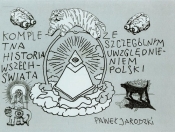 KOMPLE
TNA
HISTORIA
WSZECH-
ŚWIATA
ZE
SZCZEGÓLNYM
UWZGLĘDNIE-
NIEM
POLSKI
PAWEŁ JARODZKI